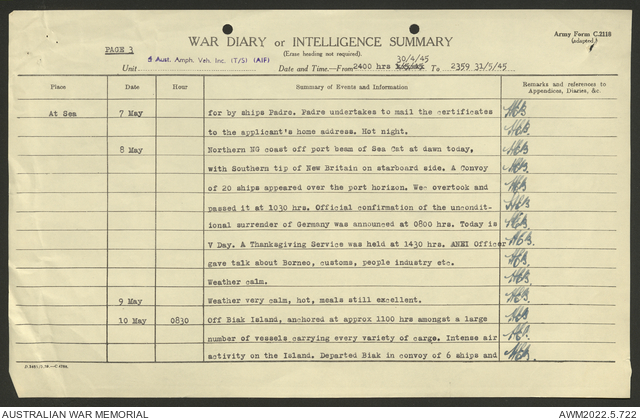 Army Form C.2118
(adapted.)
PAGE 3
WAR DIARY or INTELLIGENCE SUMMARY
(Erase heading not required).
Unit Aust. Amph. Veh. Inc. (T/S) (AIF)
Date and Time.—From 2400 hrs 30/4/45 To 2359 31/5/45
Place Date Hour Summary of Events and Information Remarks and references to Appendices, Diaries, &c.
At Sea 7 May for by ships Padre. Padre undertakes to mail the certificates
to the applicant's home address. Hot night.
8 May Northern NG coast off port beam of Sea Cat at dawn today,
with Southern tip of New Britain on starboard side. A Convoy
of 20 ships appeared over the port horizon. We overtook and
passed it at 1030 hrs. Official confirmation of the uncondit-
ional surrender of Germany was announced at 0800 hrs. Today is
V Day. A Thanksgiving Service was held at 1430 hrs. ANEI Officer
gave talk about Borneo, customs, people industry etc.
Weather calm.
9 May Weather very calm, hot, meals still excellent.
10 May 0830 Off Biak Island, anchored at approx 1100 hrs amongst a large
number of vessels carrying every variety of cargo. Intense air
activity on the Island. Departed Biak in convoy of 6 ships and
AUSTRALIAN WAR MEMORIAL
AWM2022.5.722